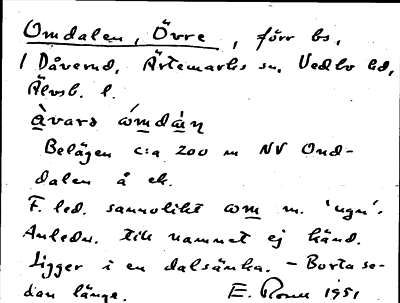 Omdalen, Övre, förr bs,
/ Dåverud, Ärtemarks sn, Vedbo hd,
Älvsb. l.
àvarə ómdàn
Belägen c:a 200 m NV Ond-
dalen å ek.
F. led. sannolikt om m. 'ugn'.
Anledn. till namnet ej känd.
Ligger i en dalsänka. – Borta se-
dan länge. E. 1951